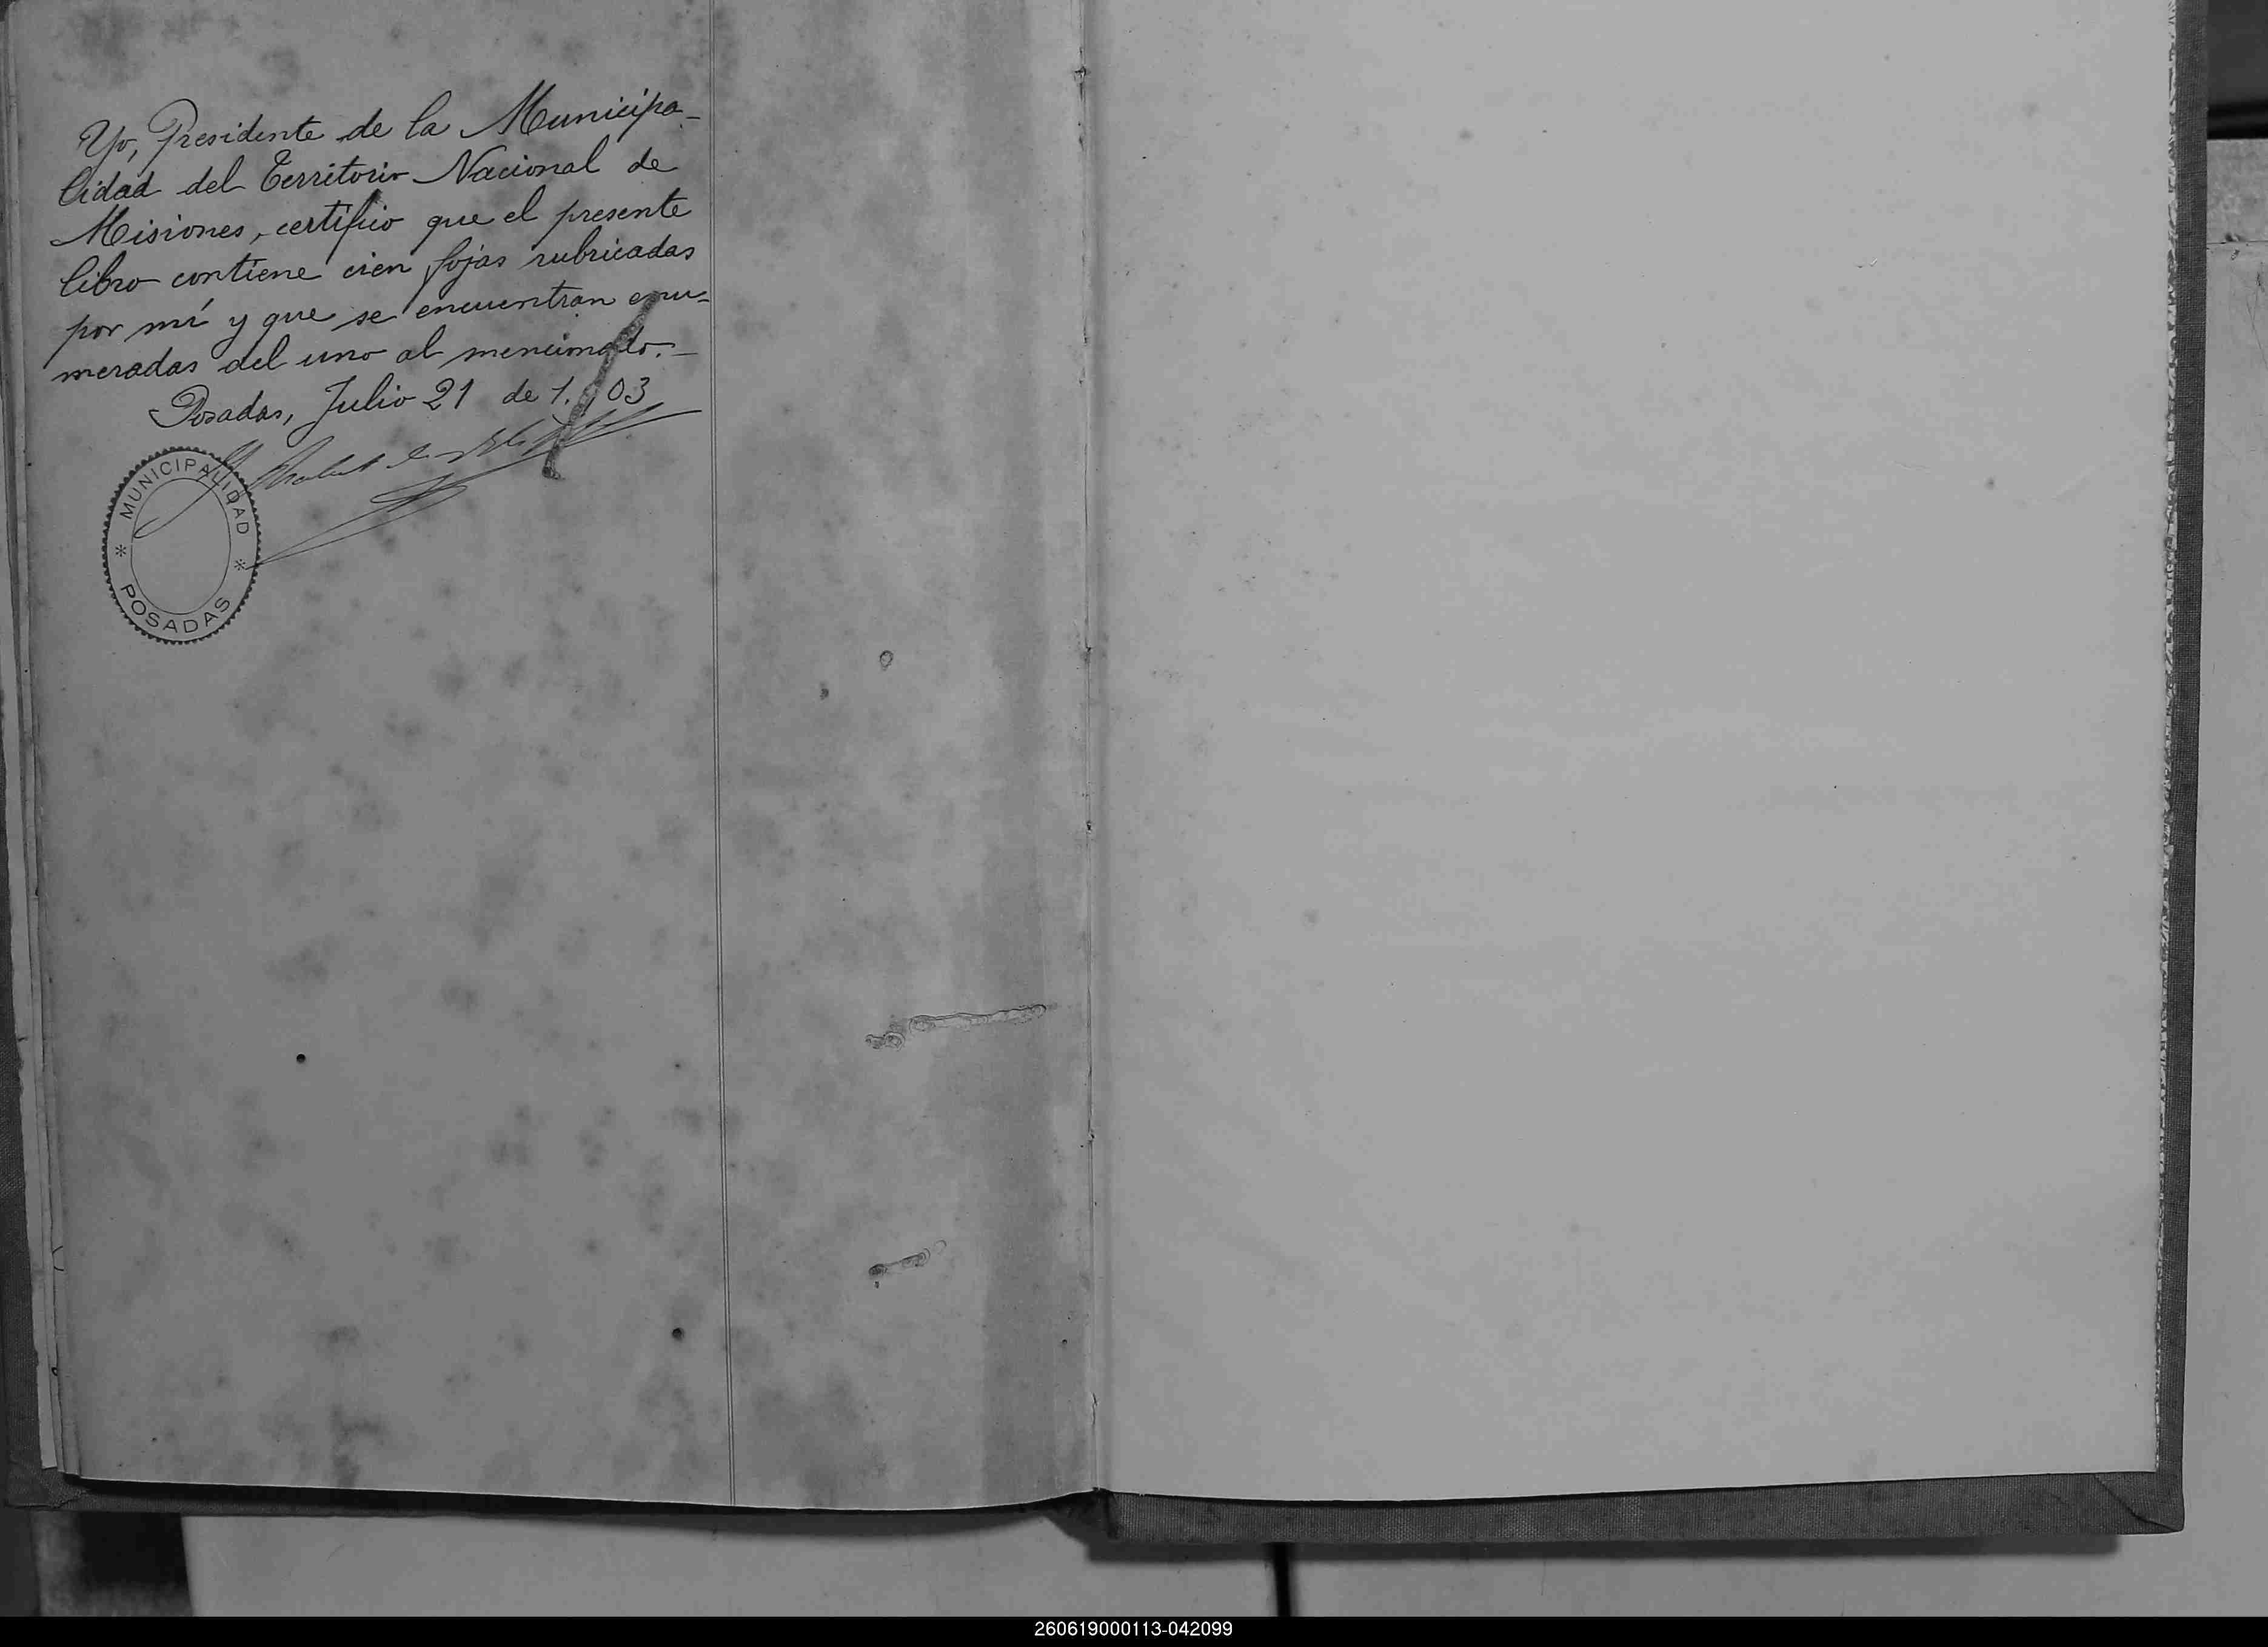 Yo, Presidente de la Municipa-
lidad del Territorio Nacional de
Misiones, certifico que el presente
libro contiene cien fojas rubricadas
por mí y que se encuentran enu-
meradas del uno al mencionado.-
Posadas, Julio 21 de 1. 03
MUNICIPALIDAD
* *
POSADAS
260619000113-042099